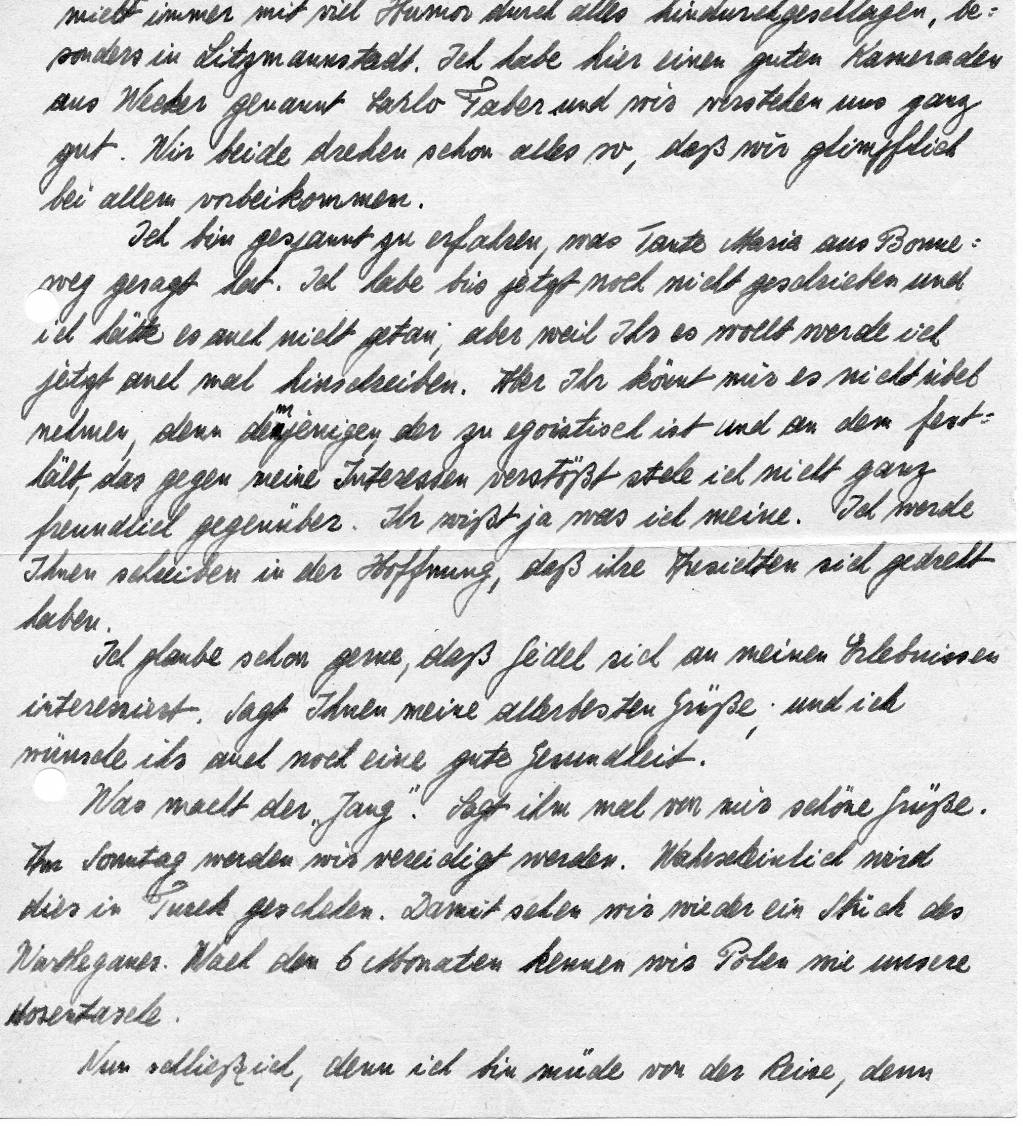 mich immer mit viel Humor durch alles hindurchgeschlagen, be=
sonders in Litzmannstadt. Ich habe hier einen guten Kameraden
aus Wecker genannt Carlo Faber und wir verstehen uns ganz
gut. Wir beide drehen schon alles so, daß wir glimpflich
bei allem vorbeikommen.
Ich bin gespannt zu erfahren, was Tante Maria aus Bonne=
weg gesagt hat. Ich habe bis jetzt noch nicht geschrieben und
ich hätte es auch nicht getan, aber weil Ihr es wollt werde ich
jetzt auch mal hinschreiben. Aber Ihr könnt mir es nicht übel
nehmen, denn demjenigen, der zu egoistisch ist und an dem fest=
hält, das gegen meine Interessen verstößt stehe ich nicht ganz
freundlich gegenüber. Ihr wißt ja was ich meine. Ich werde
Ihnen schreiben in der Hoffnung, daß ihre Ansichten sich gedreht
haben.
Ich glaube schon gerne, daß sich an meinen Erlebnissen
interessiert. Sagt Ihnen meine allerbesten Grüße, und ich
wünsche ihr auch noch eine gute Gesundheit.
Was macht der „Jang". Sagt ihm mal von mir schöne Grüße.
Am Sonntag werden wir vereidigt werden. Wahrscheinlich wird
dies in Turek geschehen. Damit sehen wir wieder ein Stück des
Warthegaues. Nach den 6 Monaten kennen wir Polen wie unsere
Hosentasche.
Nun schließ ich, denn ich bin müde von der Reise, denn